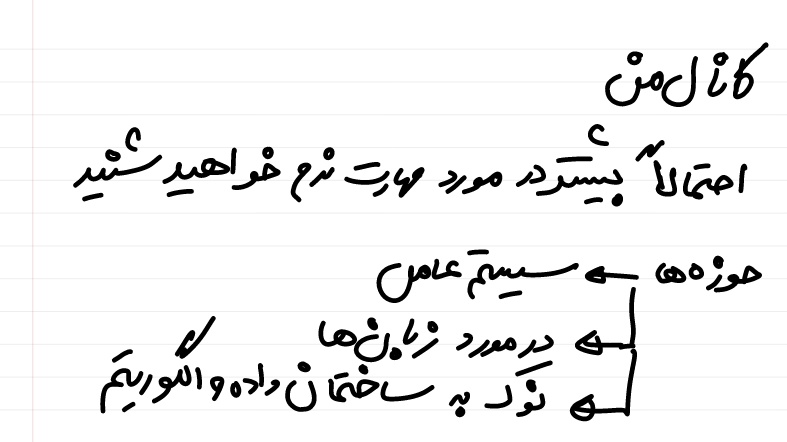 کانال من
احتمالاً بیشتر در مورد مهارت نرم خواهید شنید
حوزه ها ← سیستم عامل
← در مورد زبان ها
← نوک به ساختمان داده و الگوریتم